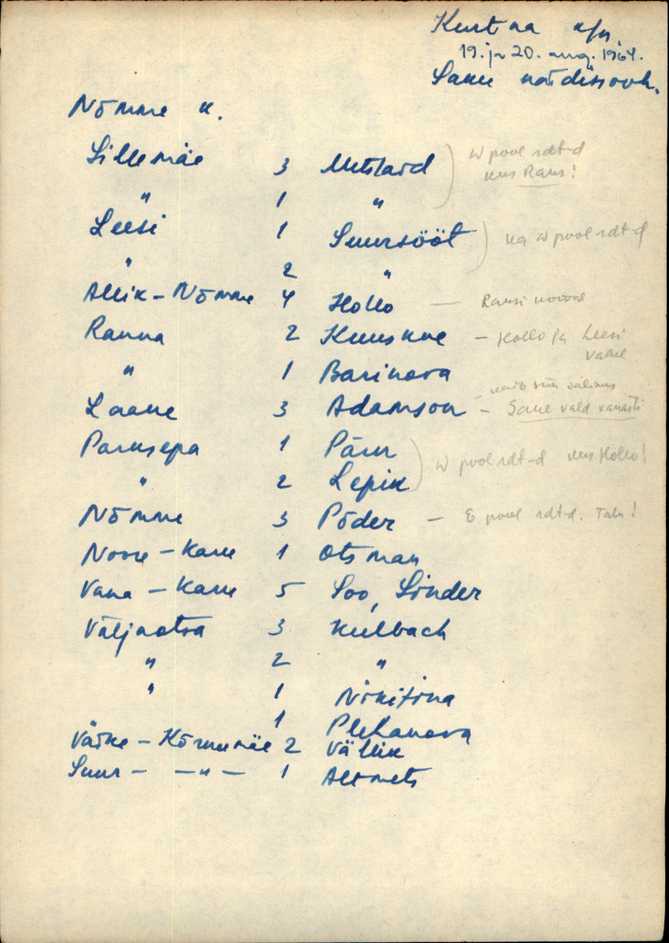 Kurtna k/n.
19. ja 20. aug. 1964.
Saku näidissovh.
Nõmme k.
Lillemäe 3 Metslaid ) W pool rdt-d
" 1 "
Leesi 1 Suursööt ) ka W pool rdt-d
" 2 "
Allik-Nõmme 4 Hollo —
Ranna 2 Kuuskne - Hollo ja Leesi
vahel
" 1 Barinova
Laane 3 Adamson - Saue vald vanasti
Parusepa 1 Pärn ) W pool rdt-d Hollo!
" 2 Lepik
Nõmme 3 Põder — E pool rdt-d.
Noore-Kane 1 Otsman
Vana-Kane 5 Soo, Linder
Väljaotsa 3 Kulbach
" 2 "
" 1 Nikitina
1 Plehanova
Väike-Kõrnumäe 2 Vällik
Suur- -"- 1 Altmets